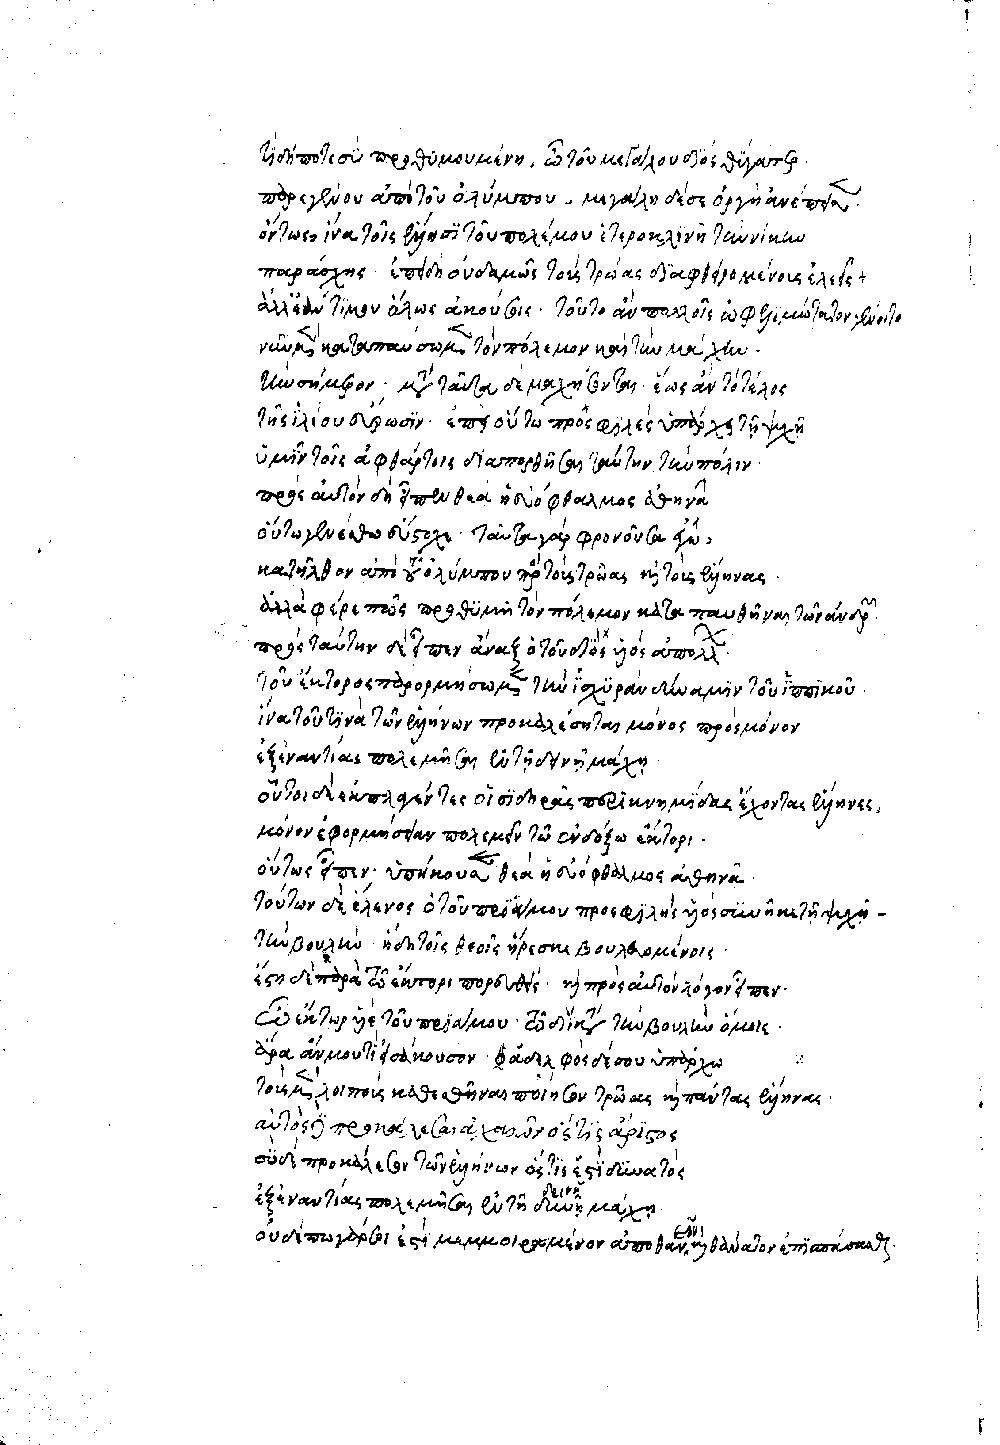 τί δήποτε σὺ προθυμουμένη, ὦ τοῦ μεγάλου διὸς θύγατερ.
παρεγένου ἀπὸ τοῦ ὀλύμπου. μεγάλη δέ σε ὀργὴ ἀνέπεισεν.
ὄντως ἵνα τοῖς ἕλλησι τοῦ πολέμου ἑτεροκλινῆ τὴν νίκην
παράσχῃς. ἐπειδὴ οὐδαμῶς τοὺς τρῶας διαφθειρομένους ἐλεεῖς
ἀλλ' εἴ μοι ὅλως ἀκούσεις. τοῦτο ἂν πολλοῖς ὠφελιμώτατον γένοιτο
νῦν μὲν καταπαύσωμεν τὸν πόλεμον καὶ τὴν μάχην.
τὴν σήμερον. μετὰ ταῦτα δὲ μαχήσονται. ἕως ἂν τὸ τέλος
τῆς ἰλίου εὕρωσιν. ἐπεὶ οὕτω προσφιλὲς ὑπάρχει τῇ ψυχῇ
ὑμῖν τοῖς ἀφθάρτοις διαπορθῆσαι ταύτην τὴν πόλιν.
πρὸς αὐτὸν δὴ εἶπεν θεὰ ἡ εὐόφθαλμος ἀθηνᾶ
οὕτω γενέσθω εὔστοχε. ταῦτα γὰρ φρονοῦσα
κατῆλθον ἀπὸ τοῦ ὀλύμπου πρὸς τοὺς τρῶας καὶ τοὺς ἕλληνας.
ἀλλὰ φέρε πῶς προθυμῇ τὸν πόλεμον καταπαυθῆναι τῶν ἀνδρῶν.
πρὸς ταύτην δὲ εἶπεν ἄναξ ὁ τοῦ διὸς υἱὸς ἀπόλλων.
τοῦ ἕκτορος παρορμήσωμεν τὴν ἰσχυρὰν δύναμιν τοῦ ἱππικοῦ.
ἵνα τοῦ τινὰ τῶν ἑλλήνων προκαλέσηται μόνος πρὸς μόνον
ἐξεναντίας πολεμῆσαι ἐν τῇ δεινῇ μάχῃ.
οὗτοι δὲ ἐκπλαγέντες οἱ σιδηρᾶς περικνημῖδας ἔχοντες ἕλληνες,
μόνον ἐφορμήσειαν πολεμεῖν τῷ ἐνδόξῳ ἕκτορι.
οὕτως εἶπεν. ὑπήκουσεν θεὰ ἡ εὐόφθαλμος ἀθηνᾶ.
τούτων δὲ ἕλενος ὁ τοῦ πριάμου προσφιλὴς υἱὸς συνῆκε τῇ ψυχῇ
τὴν βουλὴν. ἥδη τοῖς θεοῖς ἤρεσκε βουλευομένοις.
ἔστη δὲ παρὰ τῷ ἕκτορι πορευθείς. καὶ πρὸς αὐτὸν λόγον εἶπεν.
ὦ ἕκτωρ υἱὲ τοῦ πριάμου. τῷ διῒ κατὰ τὴν βουλὴν ὅμοιε.
ἆρα ἄν μου τι εἰσάκουσον. ἀδελφὸς δέ σου ὑπάρχω
τοὺς μὲν λοιποὺς καθεσθῆναι ποίησον τρῶας καὶ πάντας ἕλληνας.
αὐτὸς δὲ προκάλεσαι ἀχαιῶν ὅστις ἄριστος
σὺ δὲ προκάλεσον τῶν ἑλλήνων ὅστις ἐστὶ δυνατὸς
ἐξεναντίας πολεμῆσαι ἐν τῇ δεινῇ μάχῃ.
οὐδέπω γάρ σοι ἐστὶ μεμοιραμένον ἀποθανεῖν, καὶ θάνατον ἐπισπάσασθαι.